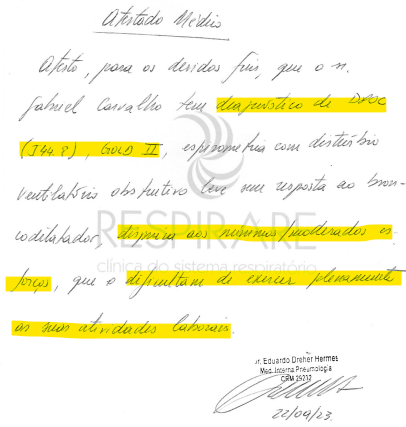 Atestado Médico
Atesto, para os devidos fins, que o sr.
Gabriel Carvalho tem diagnóstico de DPOC
(J44.8), GOLD II, espirometria com distúrbio
ventilatório obstrutivo leve sem resposta ao bron-
codilatador, dispneia aos mínimos/moderados es-
forços, que o dificultam de exercer plenamente
as suas atividades laborais.
RESPIRARE
clínica do sistema respiratório
Dr. Eduardo Dreher Hermes
Med. Interna Pneumologia
CRM 29232
22/09/23.